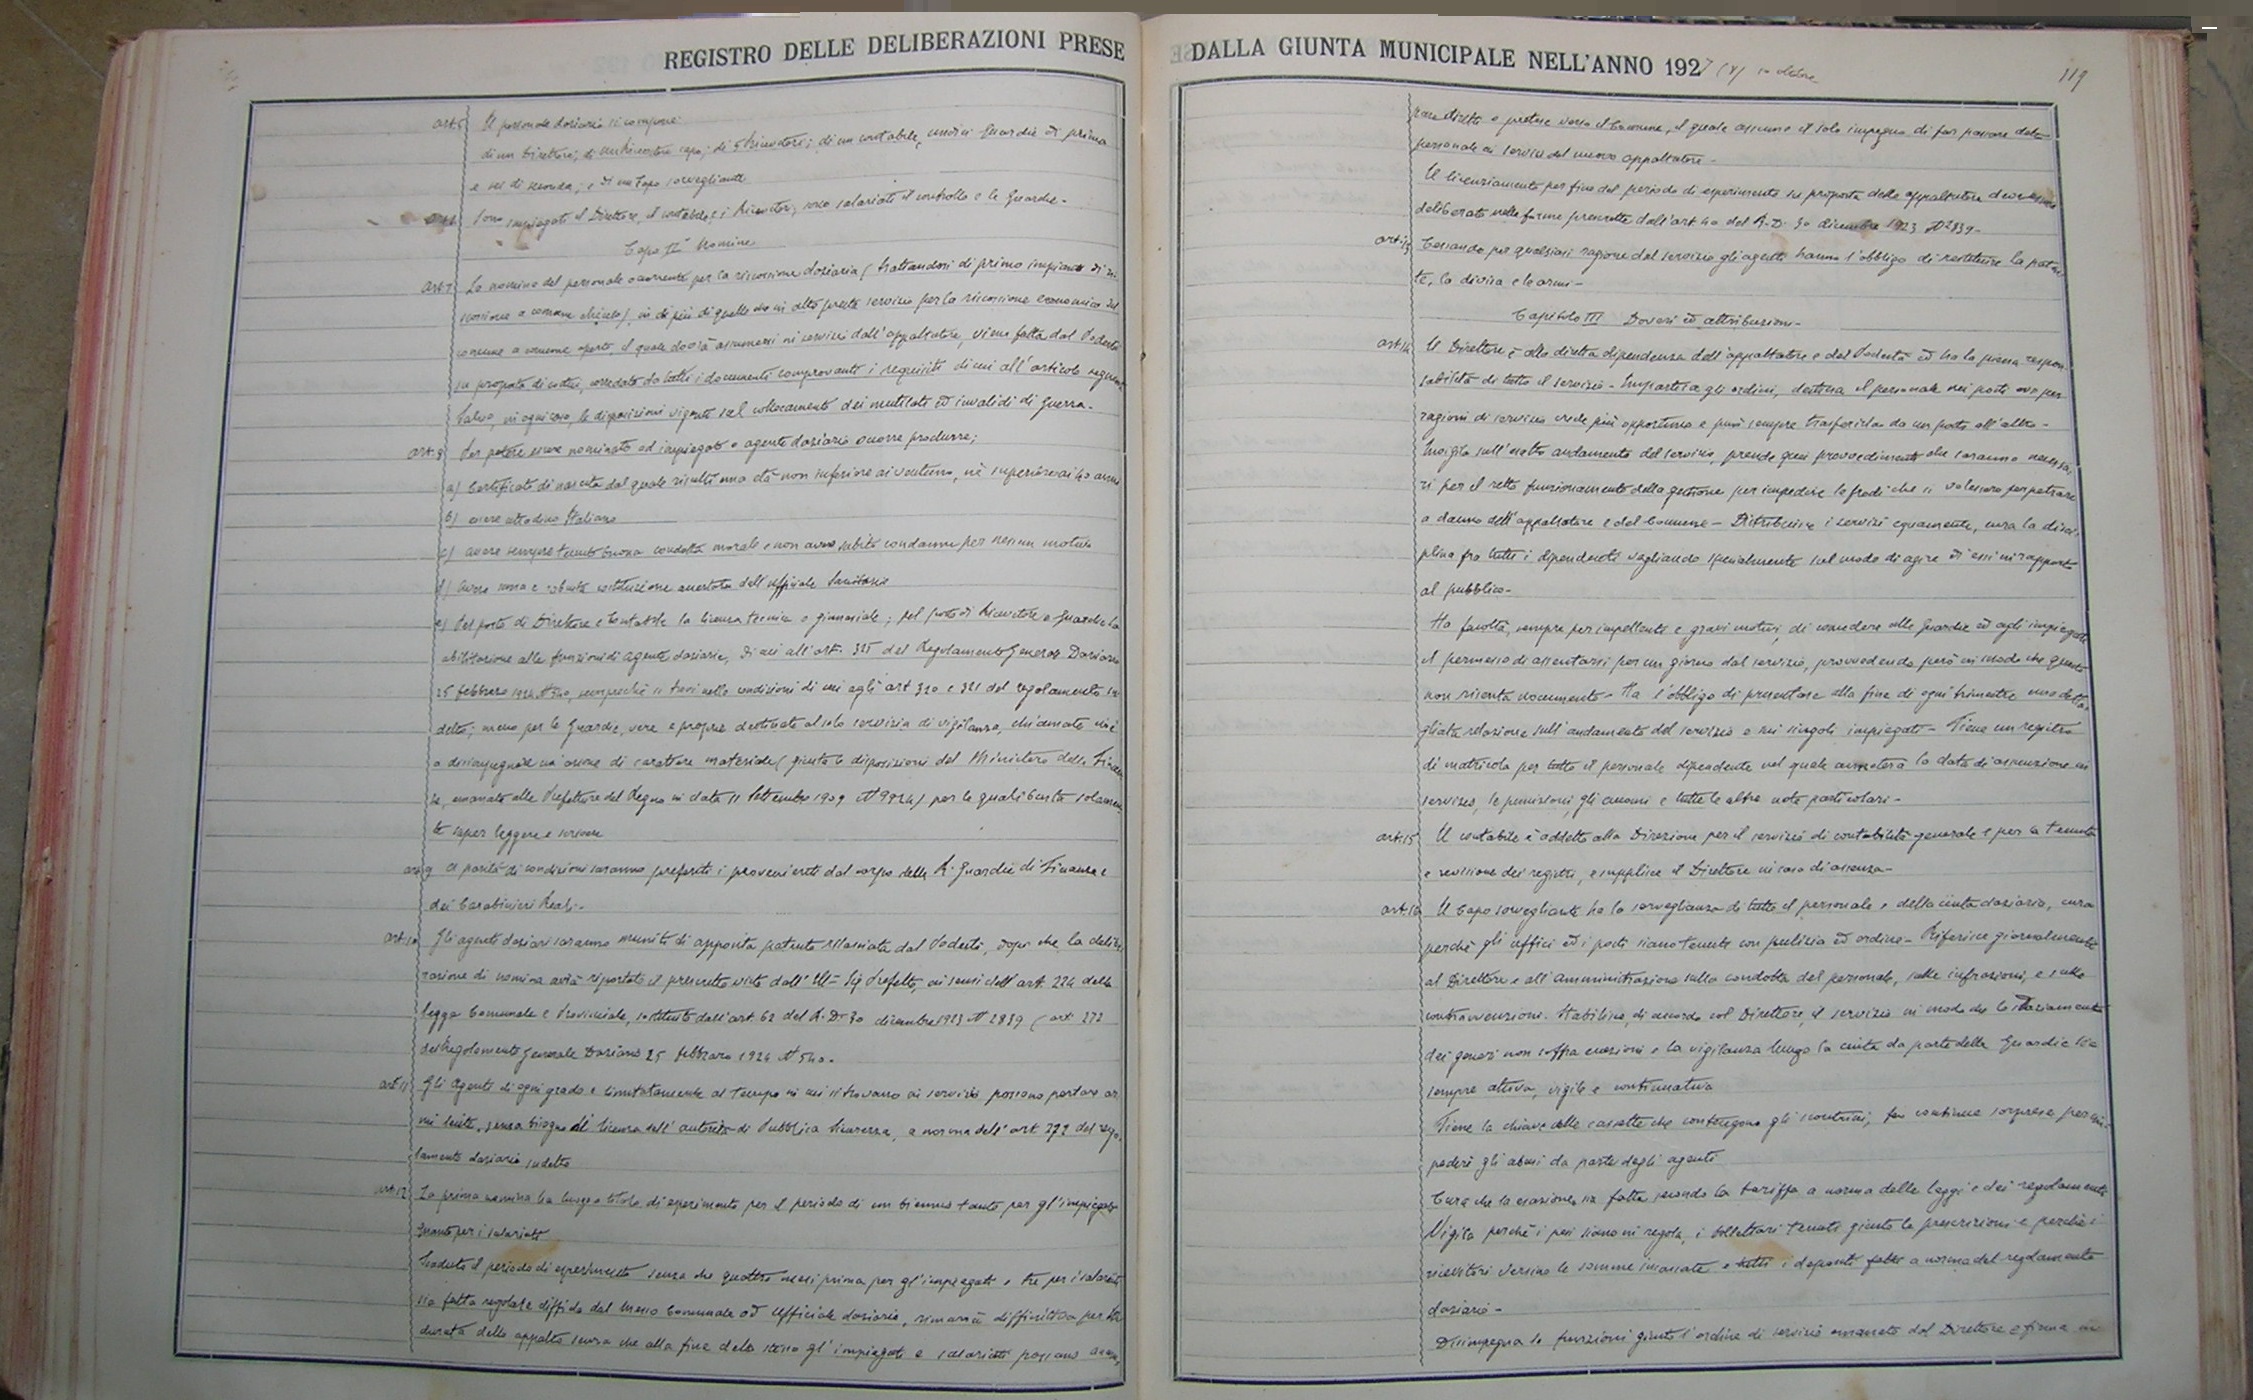 REGISTRO DELLE DELIBERAZIONI PRESE
art. 5 Il personale daziario si compone:
di un Direttore; di un Ricevitore capo; di 5 Ricevitori; di un contabile, undici Guardie di prima
e sei di seconda; e di un Capo sorvegliante
Sono impiegati il Direttore, il contabile e i Ricevitori; sono salariati il controllo e le Guardie.-
Capo II° Nomine
art. 7 La nomina del personale occorrente per la riscossione daziaria (trattandosi di primo impianto di ri-
scossione a comune chiuso), in di più di quello che in atto presta servizio per la riscossione economica del
comune a comune aperto, il quale dovrà assumersi in servizio dall'appaltatore, viene fatta dal Podestà
su proposta di costui, corredata da tutti i documenti comprovanti i requisiti di cui all'articolo seguente
Salvo, in ogni caso, le disposizioni vigenti sul collocamento dei mutilati ed invalidi di Guerra.-
art. 8 Per potere essere nominato ad impiegato o agente daziario occorre produrre;
a) Certificato di nascita dal quale risulti una età non inferiore ai ventuno, nè superiore ai 40 anni
b) essere cittadino Italiano
c) avere sempre tenuto buona condotta morale e non avere subito condanne per nessun motivo
d) avere sana e robusta costituzione accertata dall'ufficiale Sanitario
e) Pel posto di Direttore e Contabile la licenza tecnica o ginnasiale; pel posto di Ricevitore o Guardie la
abilitazione alle funzioni di agente daziario, di cui all'art. 325 del Regolamento Generale Daziario
25 febbraio 1924 N° 540, semprechè si trovi nelle condizioni di cui agli art 320 e 321 del regolamento su
detto; meno per le Guardie, vere e proprie destinate al solo servizio di vigilanza, chiamate cioè
a disimpegnare mansione di carattere materiale (giusta le disposizioni del Ministero delle Finan
ze, emanate alle Prefetture del Regno in data 11 Settembre 1909 N° 9924) per le quali basta solamen
te saper leggere e scrivere
art. 9 A parità di condizioni saranno preferiti i provenienti dal corpo delle R. Guardie di Finanza e
dei Carabinieri Reali.-
art. 10 Gli agenti daziari saranno muniti di apposita patente rilasciata dal Podestà, dopo che la delibe
razione di nomina avrà riportato il prescritto visto dall'Ill.mo Sig. Prefetto, ai sensi dell'art. 224 della
legge Comunale e Provinciale, sostituito dall'art. 62 del R. D. 30 dicembre 1923 N° 2839 (art. 272
del Regolamento Generale Daziario 25 febbraio 1924 N° 540.
art. 11 Gli Agenti di ogni grado e limitatamente al tempo in cui si trovano in servizio possono portare ar
mi lecite, senza bisogno di licenza dell'autorità di Pubblica Sicurezza, a norma dell'art. 272 del rego-
lamento daziario sudetto
art. 12 La prima nomina ha luogo a titolo di esperimento per il periodo di un biennio tanto per gl'impiegati
quanto per i salariati
Scaduto il periodo di esperimento senza che quattro mesi prima per gl'impiegati e tre per i salariati
sia fatta regolare diffida dal Messo Comunale od Ufficiale daziario, rimarrà diffinitiva per la
durata dello appalto senza che alla fine dello stesso gl'impiegati e salariati possano avan-
DALLA GIUNTA MUNICIPALE NELL'ANNO 1927 (V) 10 ottobre
119
zare diritti o pretese verso il Comune, il quale assume il solo impegno di far passare detto
personale ai servizi del nuovo appaltatore.-
Il licenziamento per fine del periodo di esperimento su proposta dello appaltatore deve essere
deliberato nelle forme prescritte dall'art. 40 del R. D. 30 dicembre 1923 N° 2839.-
art. 13 Cessando per qualsiasi ragione dal servizio gli agenti hanno l'obbligo di restituire la paten
te, la divisa e le armi.-
Capitolo III Doveri ed attribuzioni.-
art. 14 Il Direttore è alla diretta dipendenza dell'appaltatore e del Podestà ed ha la piena respon-
sabilità di tutto il servizio.- Impartisce gli ordini, destina il personale nei posti ove per
ragioni di servizio crede più opportuno e può sempre trasferirlo da un posto all'altro.-
Invigila sull'esatto andamento del servizio, prende quei provvedimenti che saranno necessa-
ri per il retto funzionamento della gestione per impedire le frodi che si volessero perpetrare
a danno dell'appaltatore e del Comune.- Distribuisce i servizi equamente, cura la disci-
plina fra tutti i dipendenti vegliando specialmente sul modo di agire di essi in rapporto
al pubblico.-
Ha facoltà, sempre per impellenti e gravi motivi, di concedere alle Guardie ed agli impiegati
il permesso di assentarsi per un giorno dal servizio, provvedendo però in modo che questo
non risenta nocumento.- Ha l'obbligo di presentare alla fine di ogni trimestre una detta-
gliata relazione sull'andamento del servizio e sui singoli impiegati.- Tiene un registro
di matricola per tutto il personale dipendente nel quale annoterà la data di assunzione in
servizio, le punizioni, gli encomi e tutte le altre note particolari.-
art. 15 Il contabile è addetto alla Direzione per il servizio di contabilità generale e per la tenuta
e revisione dei registri, e supplisce il Direttore in caso di assenza.-
art. 16 Il Capo sorvegliante ha la sorveglianza di tutto il personale e della cinta daziaria, cura
perchè gli uffici ed i posti siano tenuti con pulizia ed ordine.- Riferisce giornalmente
al Direttore e all'Amministrazione sulla condotta del personale, sulle infrazioni, e sulle
contravvenzioni. Stabilisce, di accordo col Direttore, il servizio in modo che lo sdaziamento
dei generi non soffra evasioni e la vigilanza lungo la cinta da parte delle Guardie sia
sempre attiva, vigile e continuativa
Tiene la chiave delle cassette che contengono gli scontrini, fa continue sorprese per im-
pedire gli abusi da parte degli agenti
Cura che la esazione sia fatta secondo la tariffa a norma delle leggi e dei regolamenti
Vigila perchè i pesi siano in regola, i bollettari tenuti giusta le prescrizioni e perchè i
ricevitori versino le somme incassate e tutti i depositi fatti a norma del regolamento
daziario.-
Disimpegna le funzioni giusta l'ordine di servizio emanato dal Direttore e firma in